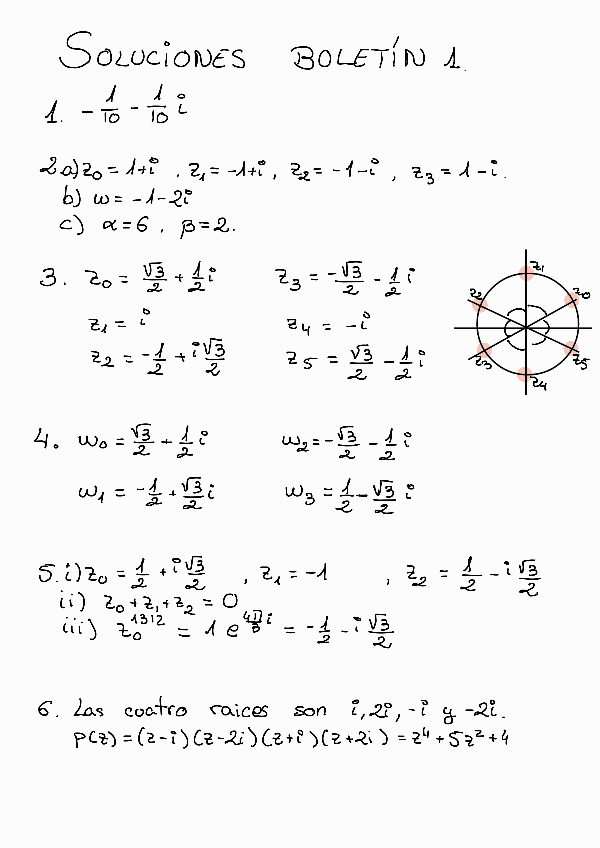 SOLUCIONES BOLETÍN 1.
1. -1/10 - 1/10 i
2a) z₀ = 1+i , z₁ = -1+i , z₂ = -1-i , z₃ = 1-i.
b) ω = -1-2i
c) α=6 , β=2.
3. z₀ = √3/2 + 1/2 i z₃ = -√3/2 - 1/2 i
z₁ = i z₄ = -i
z₂ = -1/2 + i√3/2 z₅ = √3/2 - 1/2 i
z₁
z₂ z₀
z₃ z₅
z₄
4. ω₀ = √3/2 + 1/2 i ω₂ = -√3/2 - 1/2 i
ω₁ = -1/2 + √3/2 i ω₃ = 1/2 - √3/2 i
5. i) z₀ = 1/2 + i√3/2 , z₁ = -1 , z₂ = 1/2 - i√3/2
ii) z₀ + z₁ + z₂ = 0
iii) z₀¹³¹² = 1 e^(4π/3 i) = -1/2 - i√3/2
6. Las cuatro raices son i, 2i, -i y -2i.
P(z) = (z-i)(z-2i)(z+i)(z+2i) = z⁴ + 5z² + 4